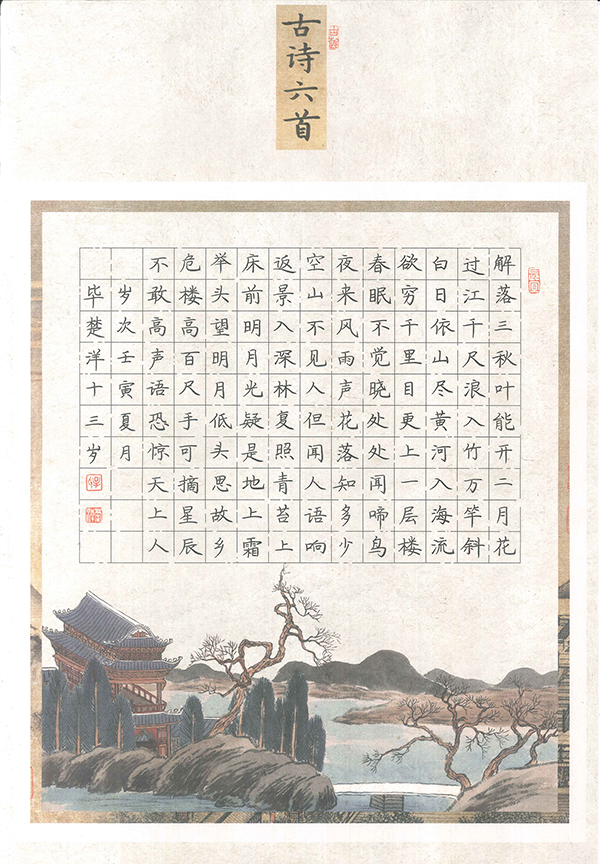 古诗六首
解落三秋叶能开二月花
过江千尺浪入竹万竿斜
白日依山尽黄河入海流
欲穷千里目更上一层楼
春眠不觉晓处处闻啼鸟
夜来风雨声花落知多少
空山不见人但闻人语响
返景入深林复照青苔上
床前明月光疑是地上霜
举头望明月低头思故乡
危楼高百尺手可摘星辰
不敢高声语恐惊天上人
岁次壬寅夏月
毕楚洋十三岁